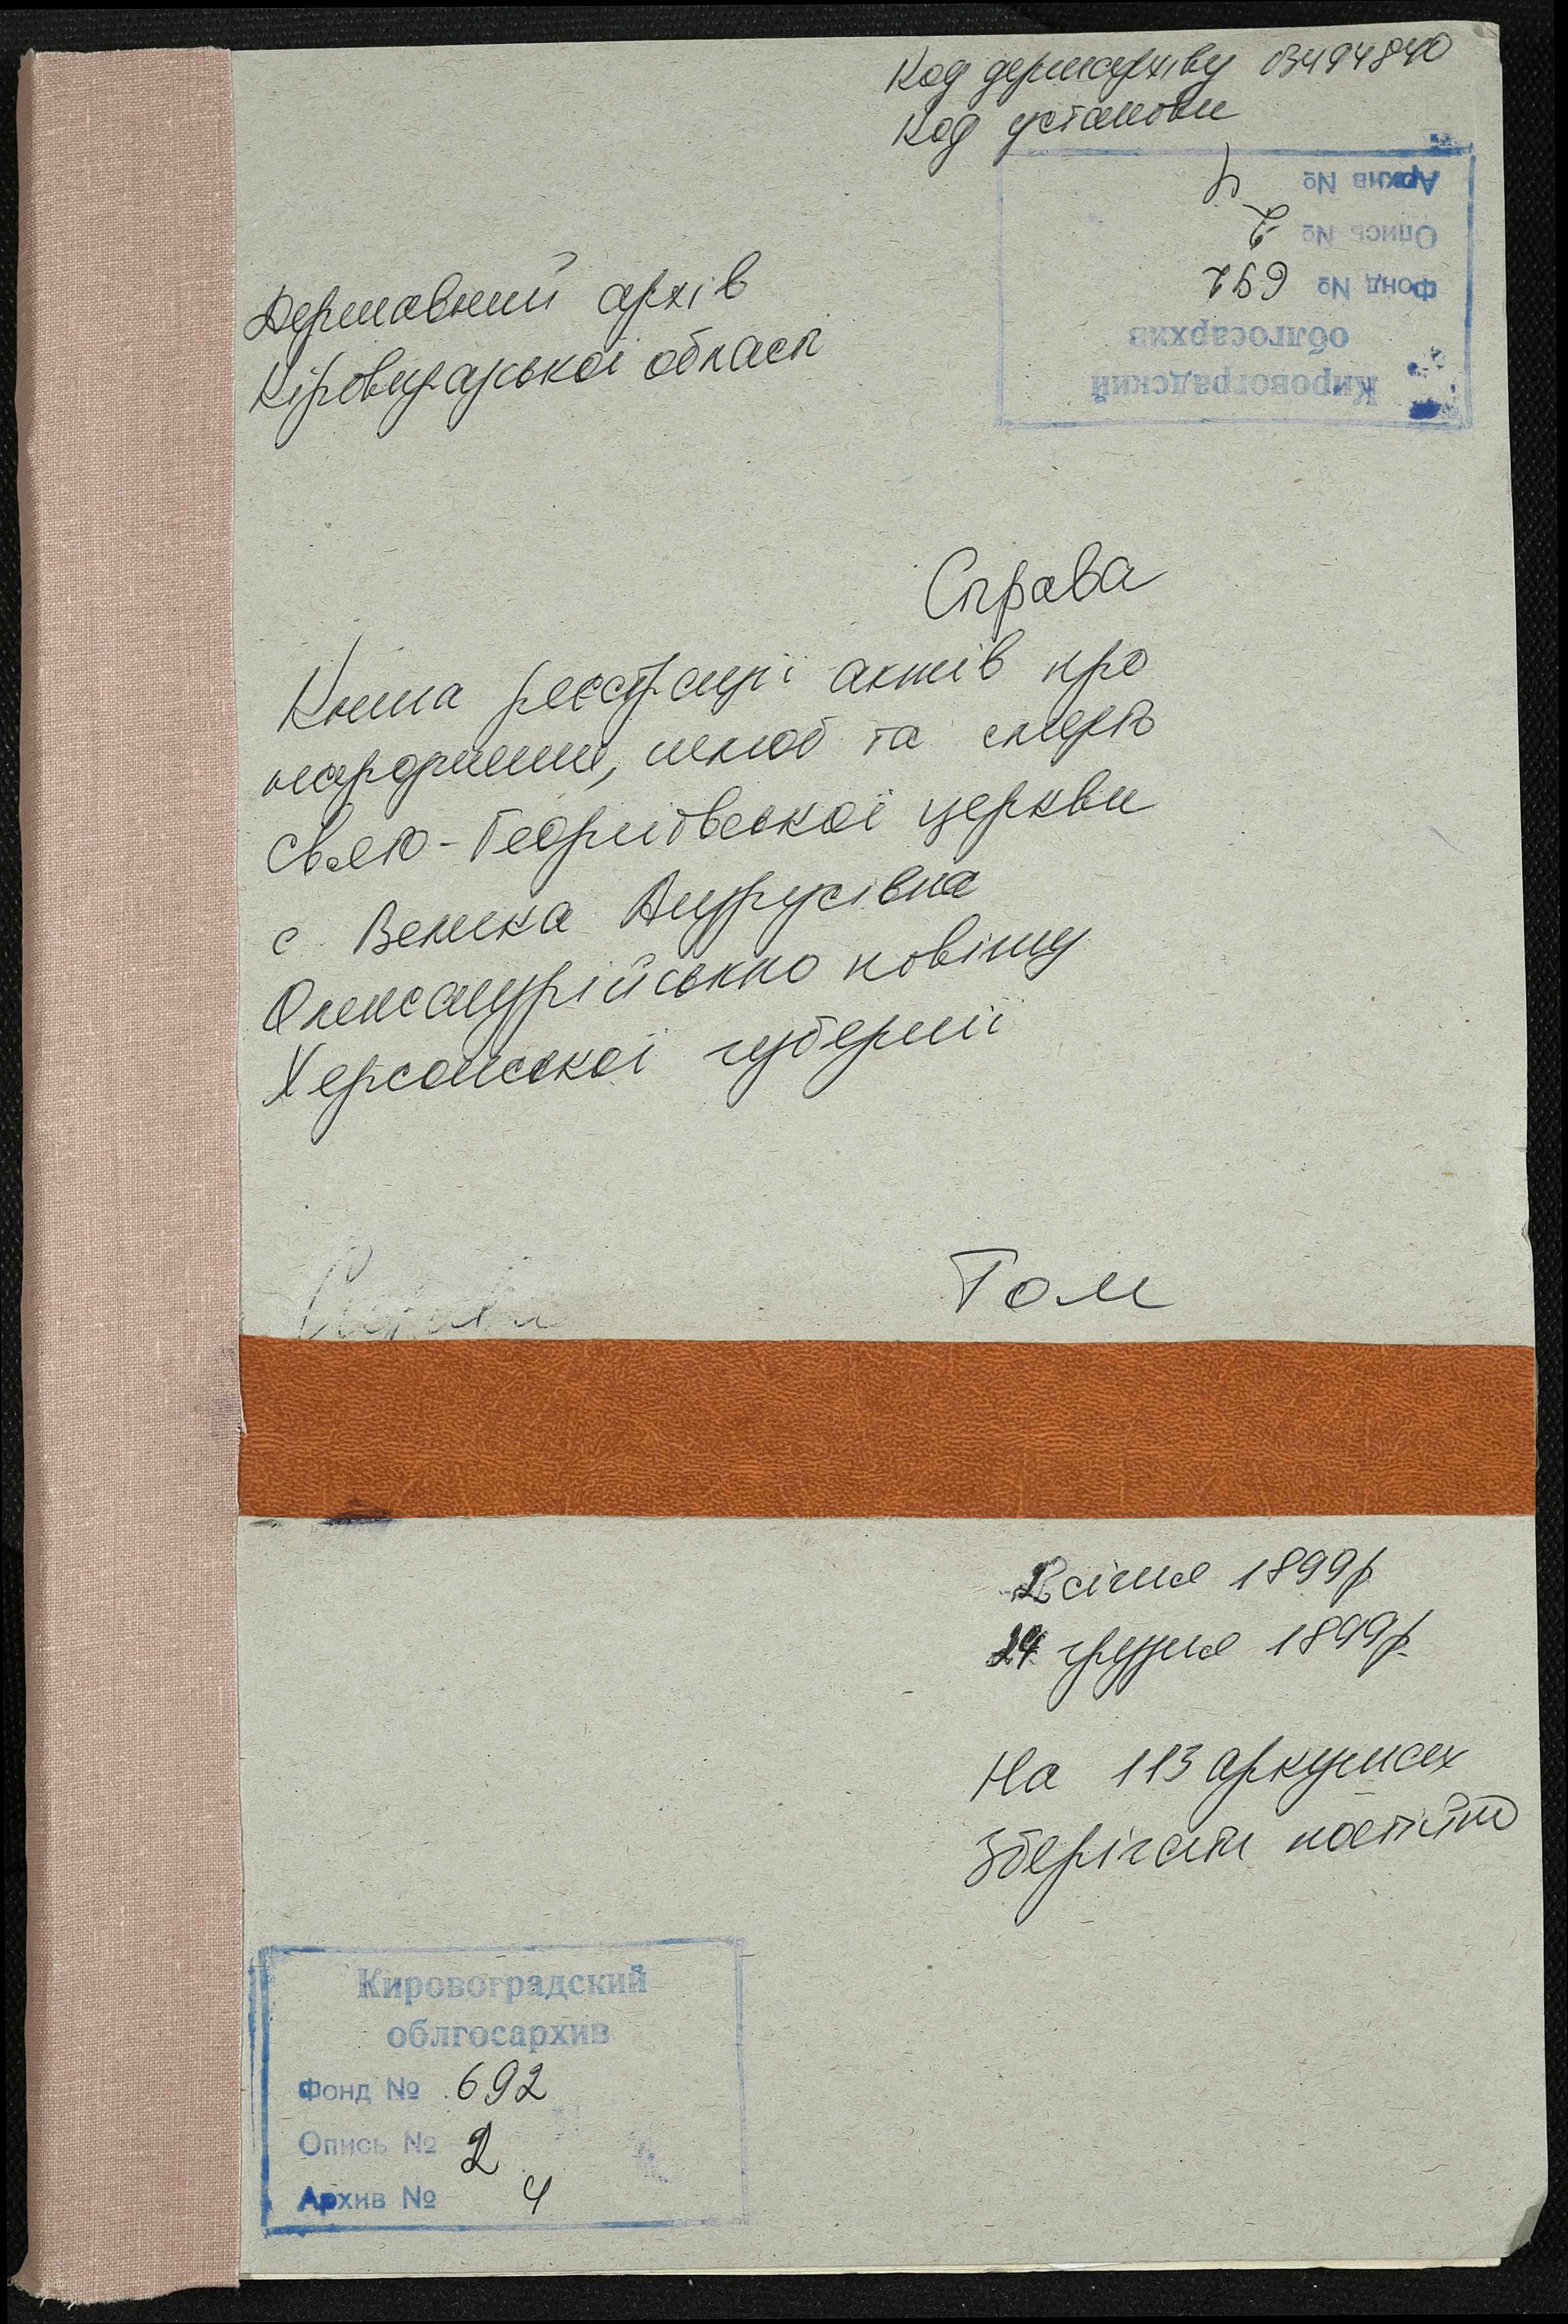 Код держархіву 03494840
Код установи
Архив № 4
Опись № 2
Фонд № 692
облгосархив
Кировоградский
Державний архів
Кіровоградської області
Справа
Книга реєстрації актів про
народження, шлюб та смерть
Свято-Георгіївської церкви
с. Велика Андрусівка
Олександрійського повіту
Херсонської губернії
Том
Справа
2 січня 1899р
24 грудня 1899р.
На 113 аркушах
Зберігати постійно
Кировоградский
облгосархив
Фонд № 692
Опись № 2
Архив № 4